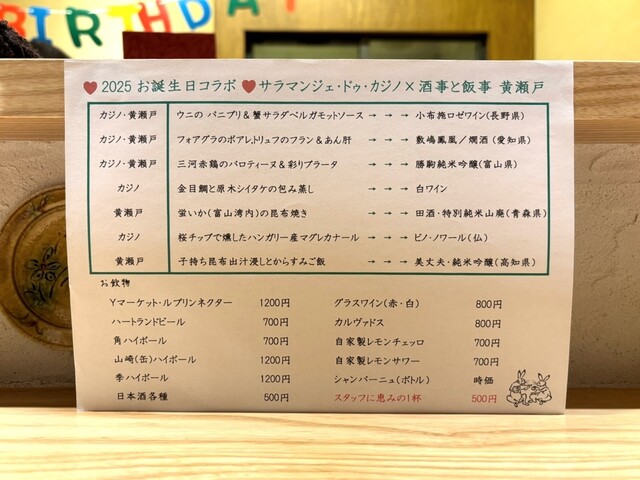 BIRTHDAY
♥ 2025 お誕生日コラボ ♥ サラマンジェ・ドゥ・カジノ × 酒事と飯事 黄瀬戸
カジノ・黄瀬戸 ウニの パニプリ & 蟹サラダベルガモットソース → → → 小布施ロゼワイン(長野県)
カジノ・黄瀬戸 フォアグラのポアレ,トリュフのフラン & あん肝 → → → 敷嶋鳳凰/燗酒 (愛知県)
カジノ・黄瀬戸 三河赤鶏のバロティーヌ & 彩りブラータ → → → 勝駒純米吟醸(富山県)
カジノ 金目鯛と原木シイタケの包み蒸し → → → 白ワイン
黄瀬戸 蛍いか(富山湾内)の昆布焼き → → → 田酒・特別純米山廃(青森県)
カジノ 桜チップで燻したハンガリー産マグレカナール → → → ピノ・ノワール(仏)
黄瀬戸 子持ち昆布出汁浸しとからすみご飯 → → → 美丈夫・純米吟醸(高知県)
お飲物
Yマーケット・ルプリンネクター 1200円 グラスワイン(赤・白) 800円
ハートランドビール 700円 カルヴァドス 800円
角ハイボール 700円 自家製レモンチェッロ 700円
山崎(缶)ハイボール 1200円 自家製レモンサワー 700円
季ハイボール 1200円 シャンパーニュ(ボトル) 時価
日本酒各種 500円 スタッフに恵みの1杯 500円